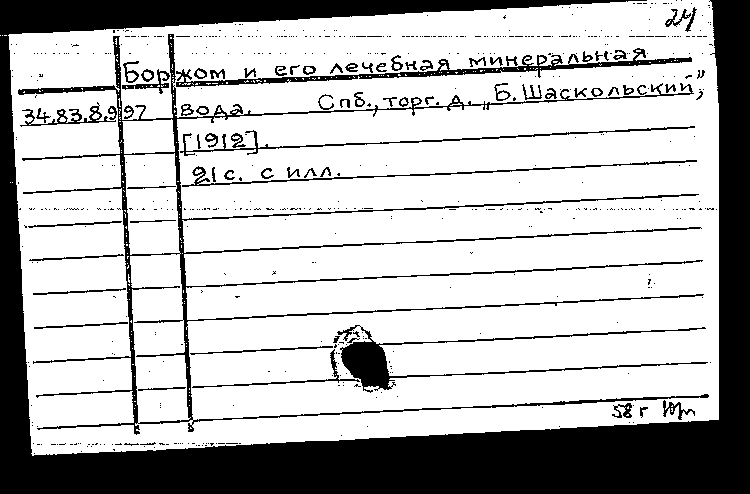 24
Боржом и его лечебная минеральная
34.83.8.997 вода. Спб., торг. д. „Б. Шаскольский”,
[1912].
21 с. с илл.
58 г